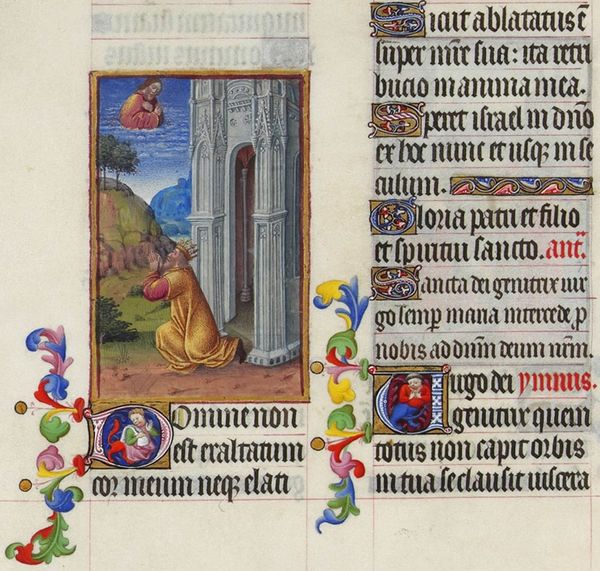 Domine non
est exaltatum
cor meum neqꝫ elati
Sicut ablatatus ē
super mr̄e sua: ita retri
bucio in anima mea.
Speret israel in dn̄o
ex hoc nunc et usqꝫ in se
culum.
Gloria patri et filio
et spiritui sancto. ant̄.
Sancta dei genitrix uir
go semp̄ maria intercede p̄
nobis ad dn̄m deum nr̄m.
Uirgo dei ymnus.
genitrix quem
totus non capit orbis
in tua se clausit uiscera